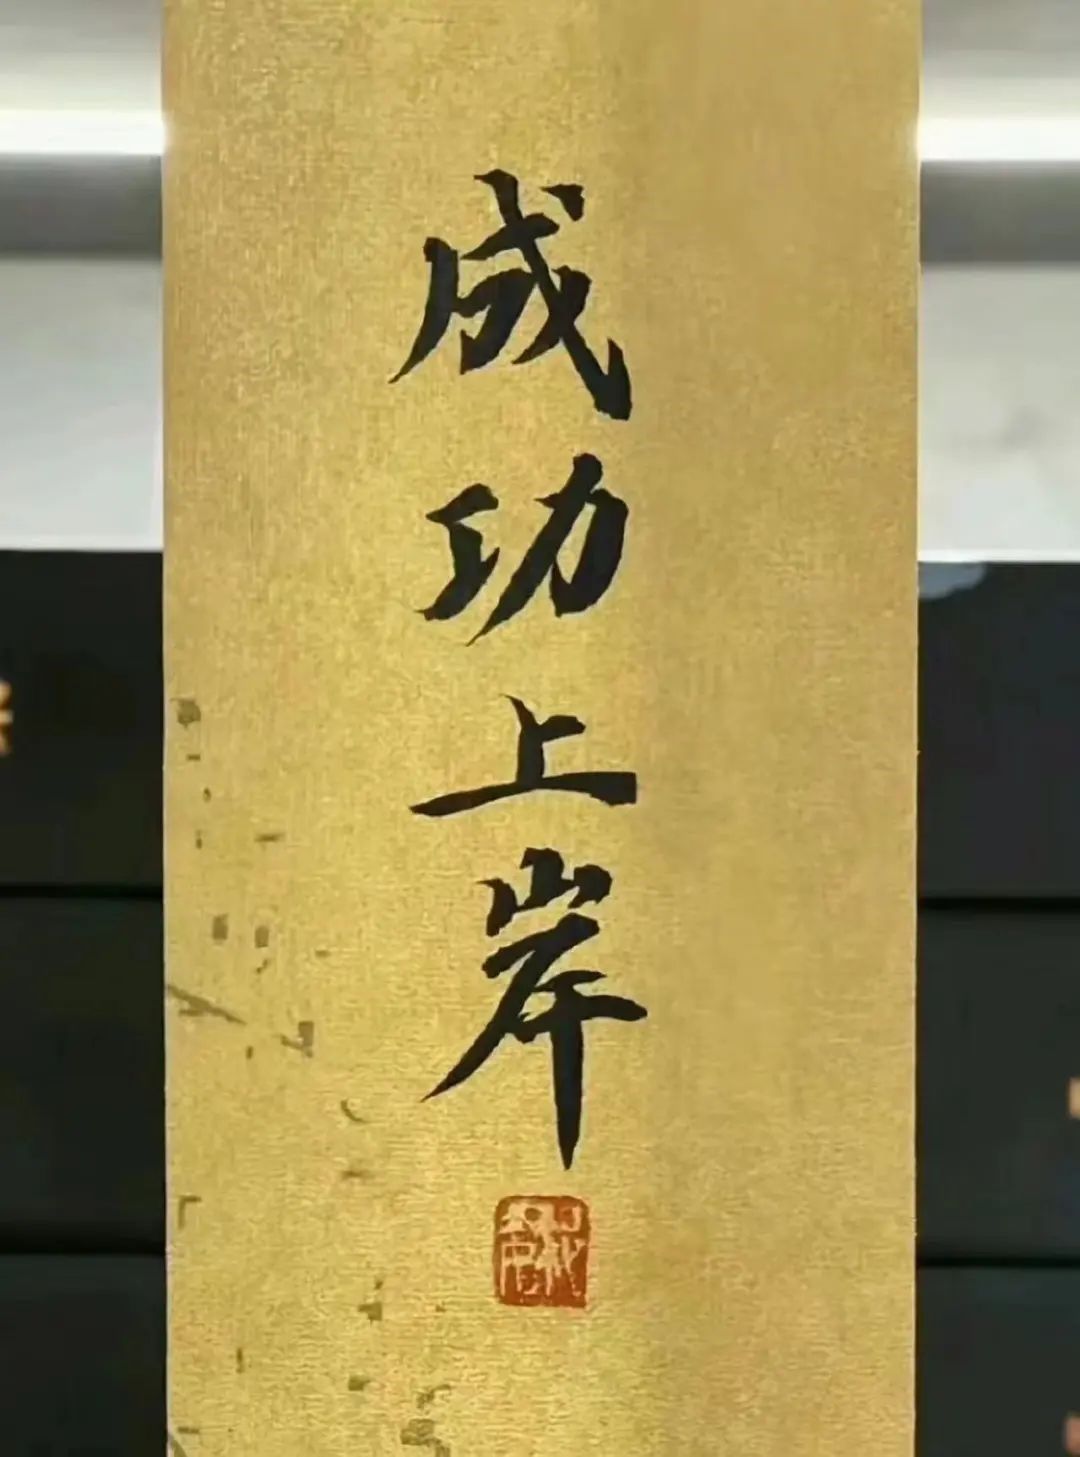 成功上岸